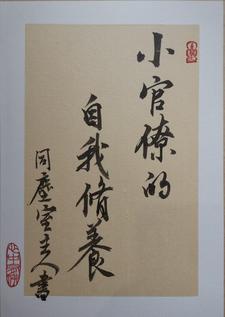 小官僚的
自我修養
同塵室主人書